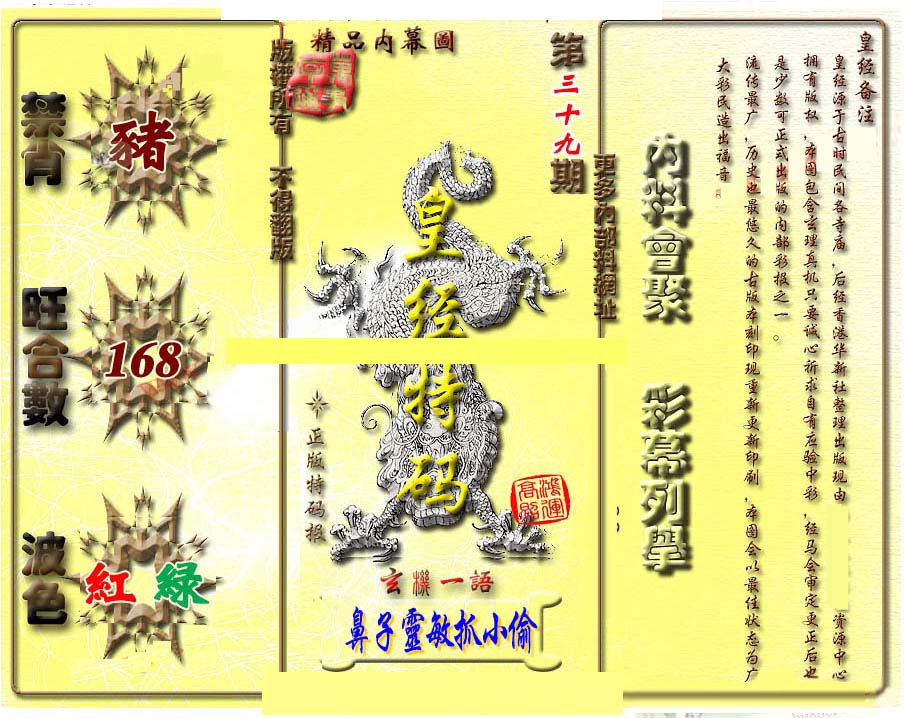 精品內幕圖
第三十九期
版權所有 不得翻版
更多內部料網址
禁肖
豬
旺合數
168
波色
紅 綠
皇经特码
正版特码报
鴻運高照
玄機一語
鼻子靈敏抓小偷
內料會聚
彩幕列舉
皇经备注
皇经源于古时民间各寺庙,后经香港华新社整理出版现由
资源中心
拥有版权,本图包含玄理真机只要诚心祈求自有应验中彩,经马会审定更正后也
是少数可正式出版的内部彩报之一。
流传最广,历史也最悠久的古版本刻印现重新更新印刷,本图会以最佳状态为广
大彩民造出福音